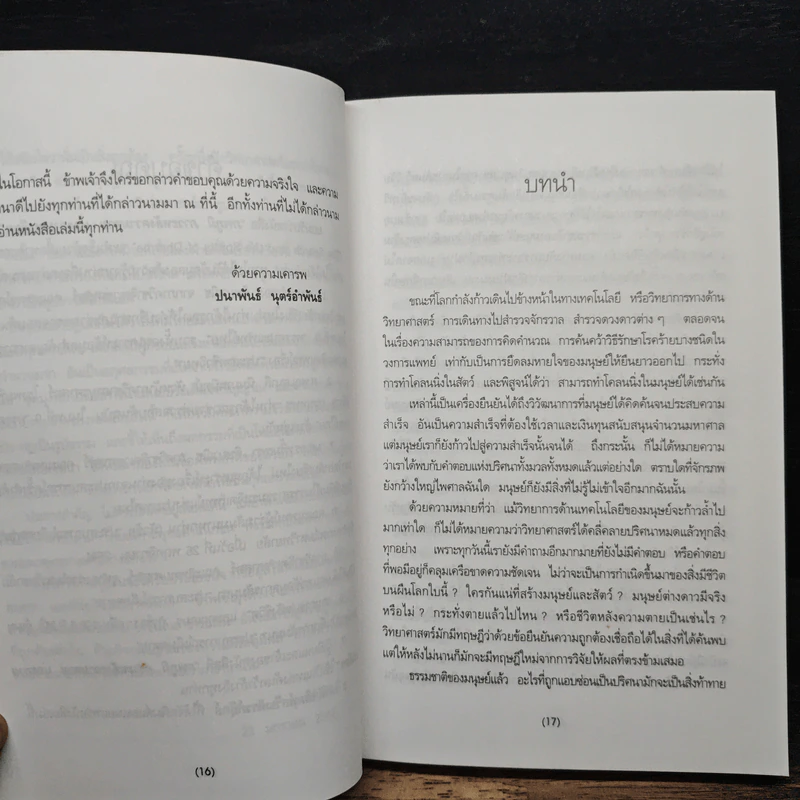 ในโอกาสนี้ ข้าพเจ้าจึงใคร่ขอกล่าวคำขอบคุณด้วยความจริงใจ และความ
นาดีไปยังทุกท่านที่ได้กล่าวนามมา ณ ที่นี้ อีกทั้งท่านที่ไม่ได้กล่าวนาม
อ่านหนังสือเล่มนี้ทุกท่าน
ด้วยความเคารพ
ปนาพันธ์ นุตร์อำพันธ์
(16)
บทนำ
ขณะที่โลกกำลังก้าวเดินไปข้างหน้าในทางเทคโนโลยี หรือวิทยาการทางด้าน
วิทยาศาสตร์ การเดินทางไปสำรวจจักรวาล สำรวจดวงดาวต่าง ๆ ตลอดจน
ในเรื่องความสามารถของการคิดคำนวณ การค้นคว้าวิธีรักษาโรคร้ายบางชนิดใน
วงการแพทย์ เท่ากับเป็นการยืดลมหายใจของมนุษย์ให้ยืนยาวออกไป กระทั่ง
การทำโคลนนิ่งในสัตว์ และพิสูจน์ได้ว่า สามารถทำโคลนนิ่งในมนุษย์ได้เช่นกัน
เหล่านี้เป็นเครื่องยืนยันได้ถึงวิวัฒนาการที่มนุษย์ได้คิดค้นจนประสบความ
สำเร็จ อันเป็นความสำเร็จที่ต้องใช้เวลาและเงินทุนสนับสนุนจำนวนมหาศาล
แต่มนุษย์เราก็ยังก้าวไปสู่ความสำเร็จนั้นจนได้ ถึงกระนั้น ก็ไม่ได้หมายความ
ว่าเราได้พบกับคำตอบแห่งปริศนาทั้งมวลทั้งหมดแล้วแต่อย่างใด ตราบใดที่จักรภพ
ยังกว้างใหญ่ไพศาลฉันใด มนุษย์ก็ยังมีสิ่งที่ไม่รู้ไม่เข้าใจอีกมากฉันนั้น
ด้วยความหมายที่ว่า แม้วิทยาการด้านเทคโนโลยีของมนุษย์จะก้าวล้ำไป
มากเท่าใด ก็ไม่ได้หมายความว่าวิทยาศาสตร์ได้คลี่คลายปริศนาหมดแล้วทุกสิ่ง
ทุกอย่าง เพราะทุกวันนี้เรายังมีคำถามอีกมากมายที่ยังไม่มีคำตอบ หรือคำตอบ
ที่พอมีอยู่ก็คลุมเครือขาดความชัดเจน ไม่ว่าจะเป็นการกำเนิดขึ้นมาของสิ่งมีชีวิต
บนผืนโลกใบนี้ ? ใครกันแน่ที่สร้างมนุษย์และสัตว์ ? มนุษย์ต่างดาวมีจริง
หรือไม่ ? กระทั่งตายแล้วไปไหน ? หรือชีวิตหลังความตายเป็นเช่นไร ?
วิทยาศาสตร์มักมีทฤษฎีว่าด้วยข้อยืนยันความถูกต้องเชื่อถือได้ในสิ่งที่ได้ค้นพบ
แต่ให้หลังไม่นานก็มักจะมีทฤษฎีใหม่จากการวิจัยให้ผลที่ตรงข้ามเสมอ
ธรรมชาติของมนุษย์แล้ว อะไรที่ถูกแอบซ่อนเป็นปริศนามักจะเป็นสิ่งท้าทาย
(17)